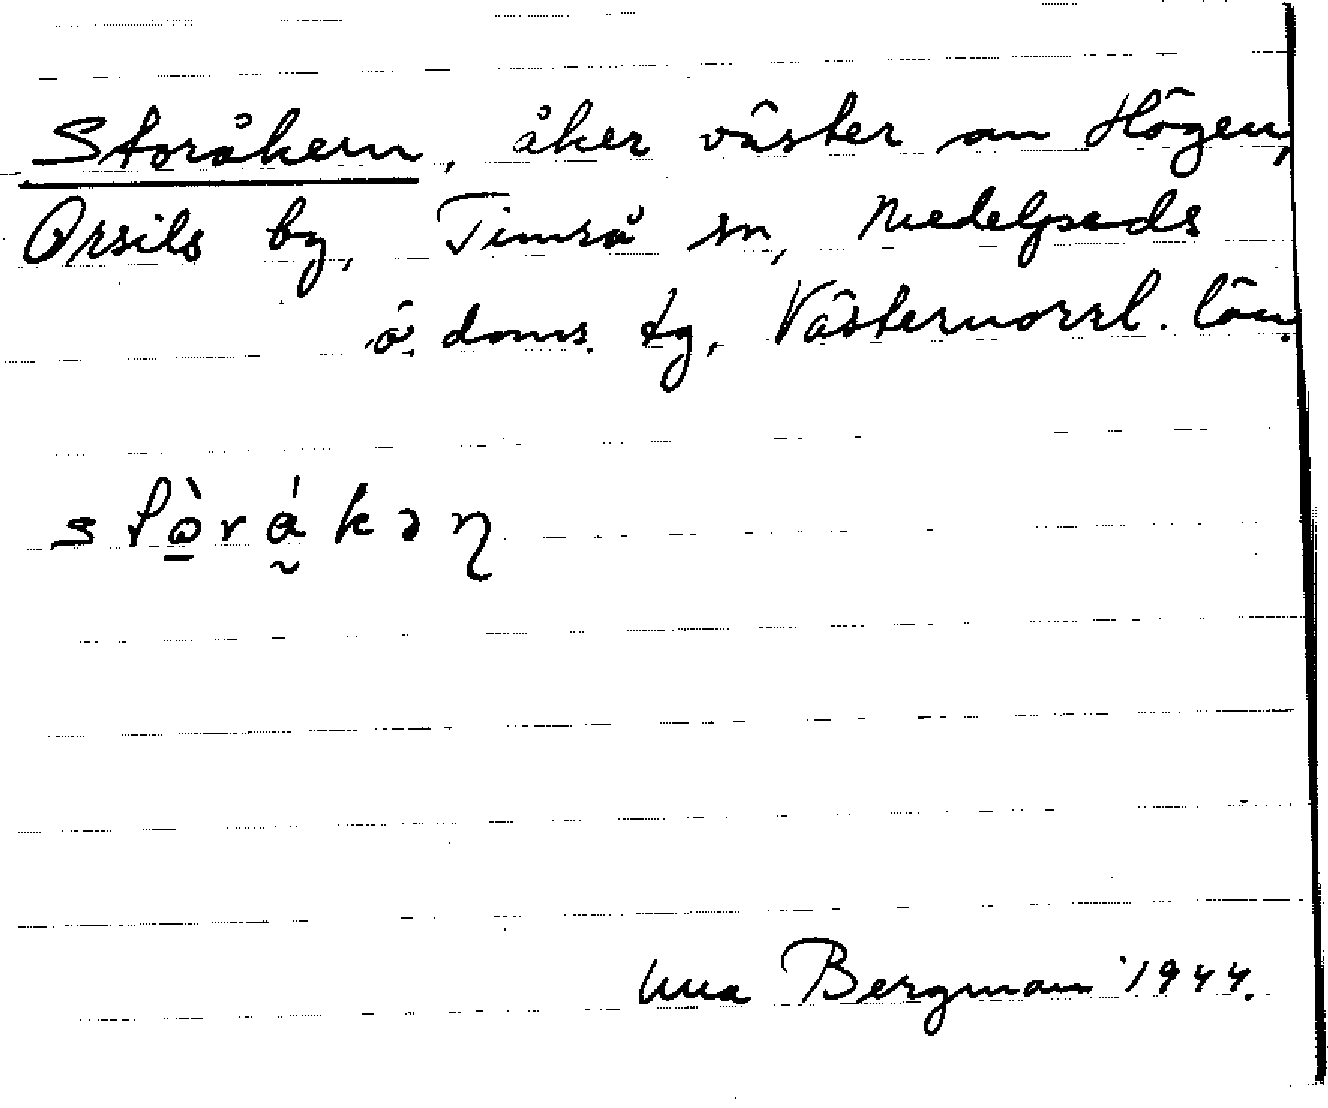 Storåkern, åker väster om Högen,
Orsils by, Timrå sn, Medelpads
ö. doms. tg, Västernorrl. län.
Bergman 1944.